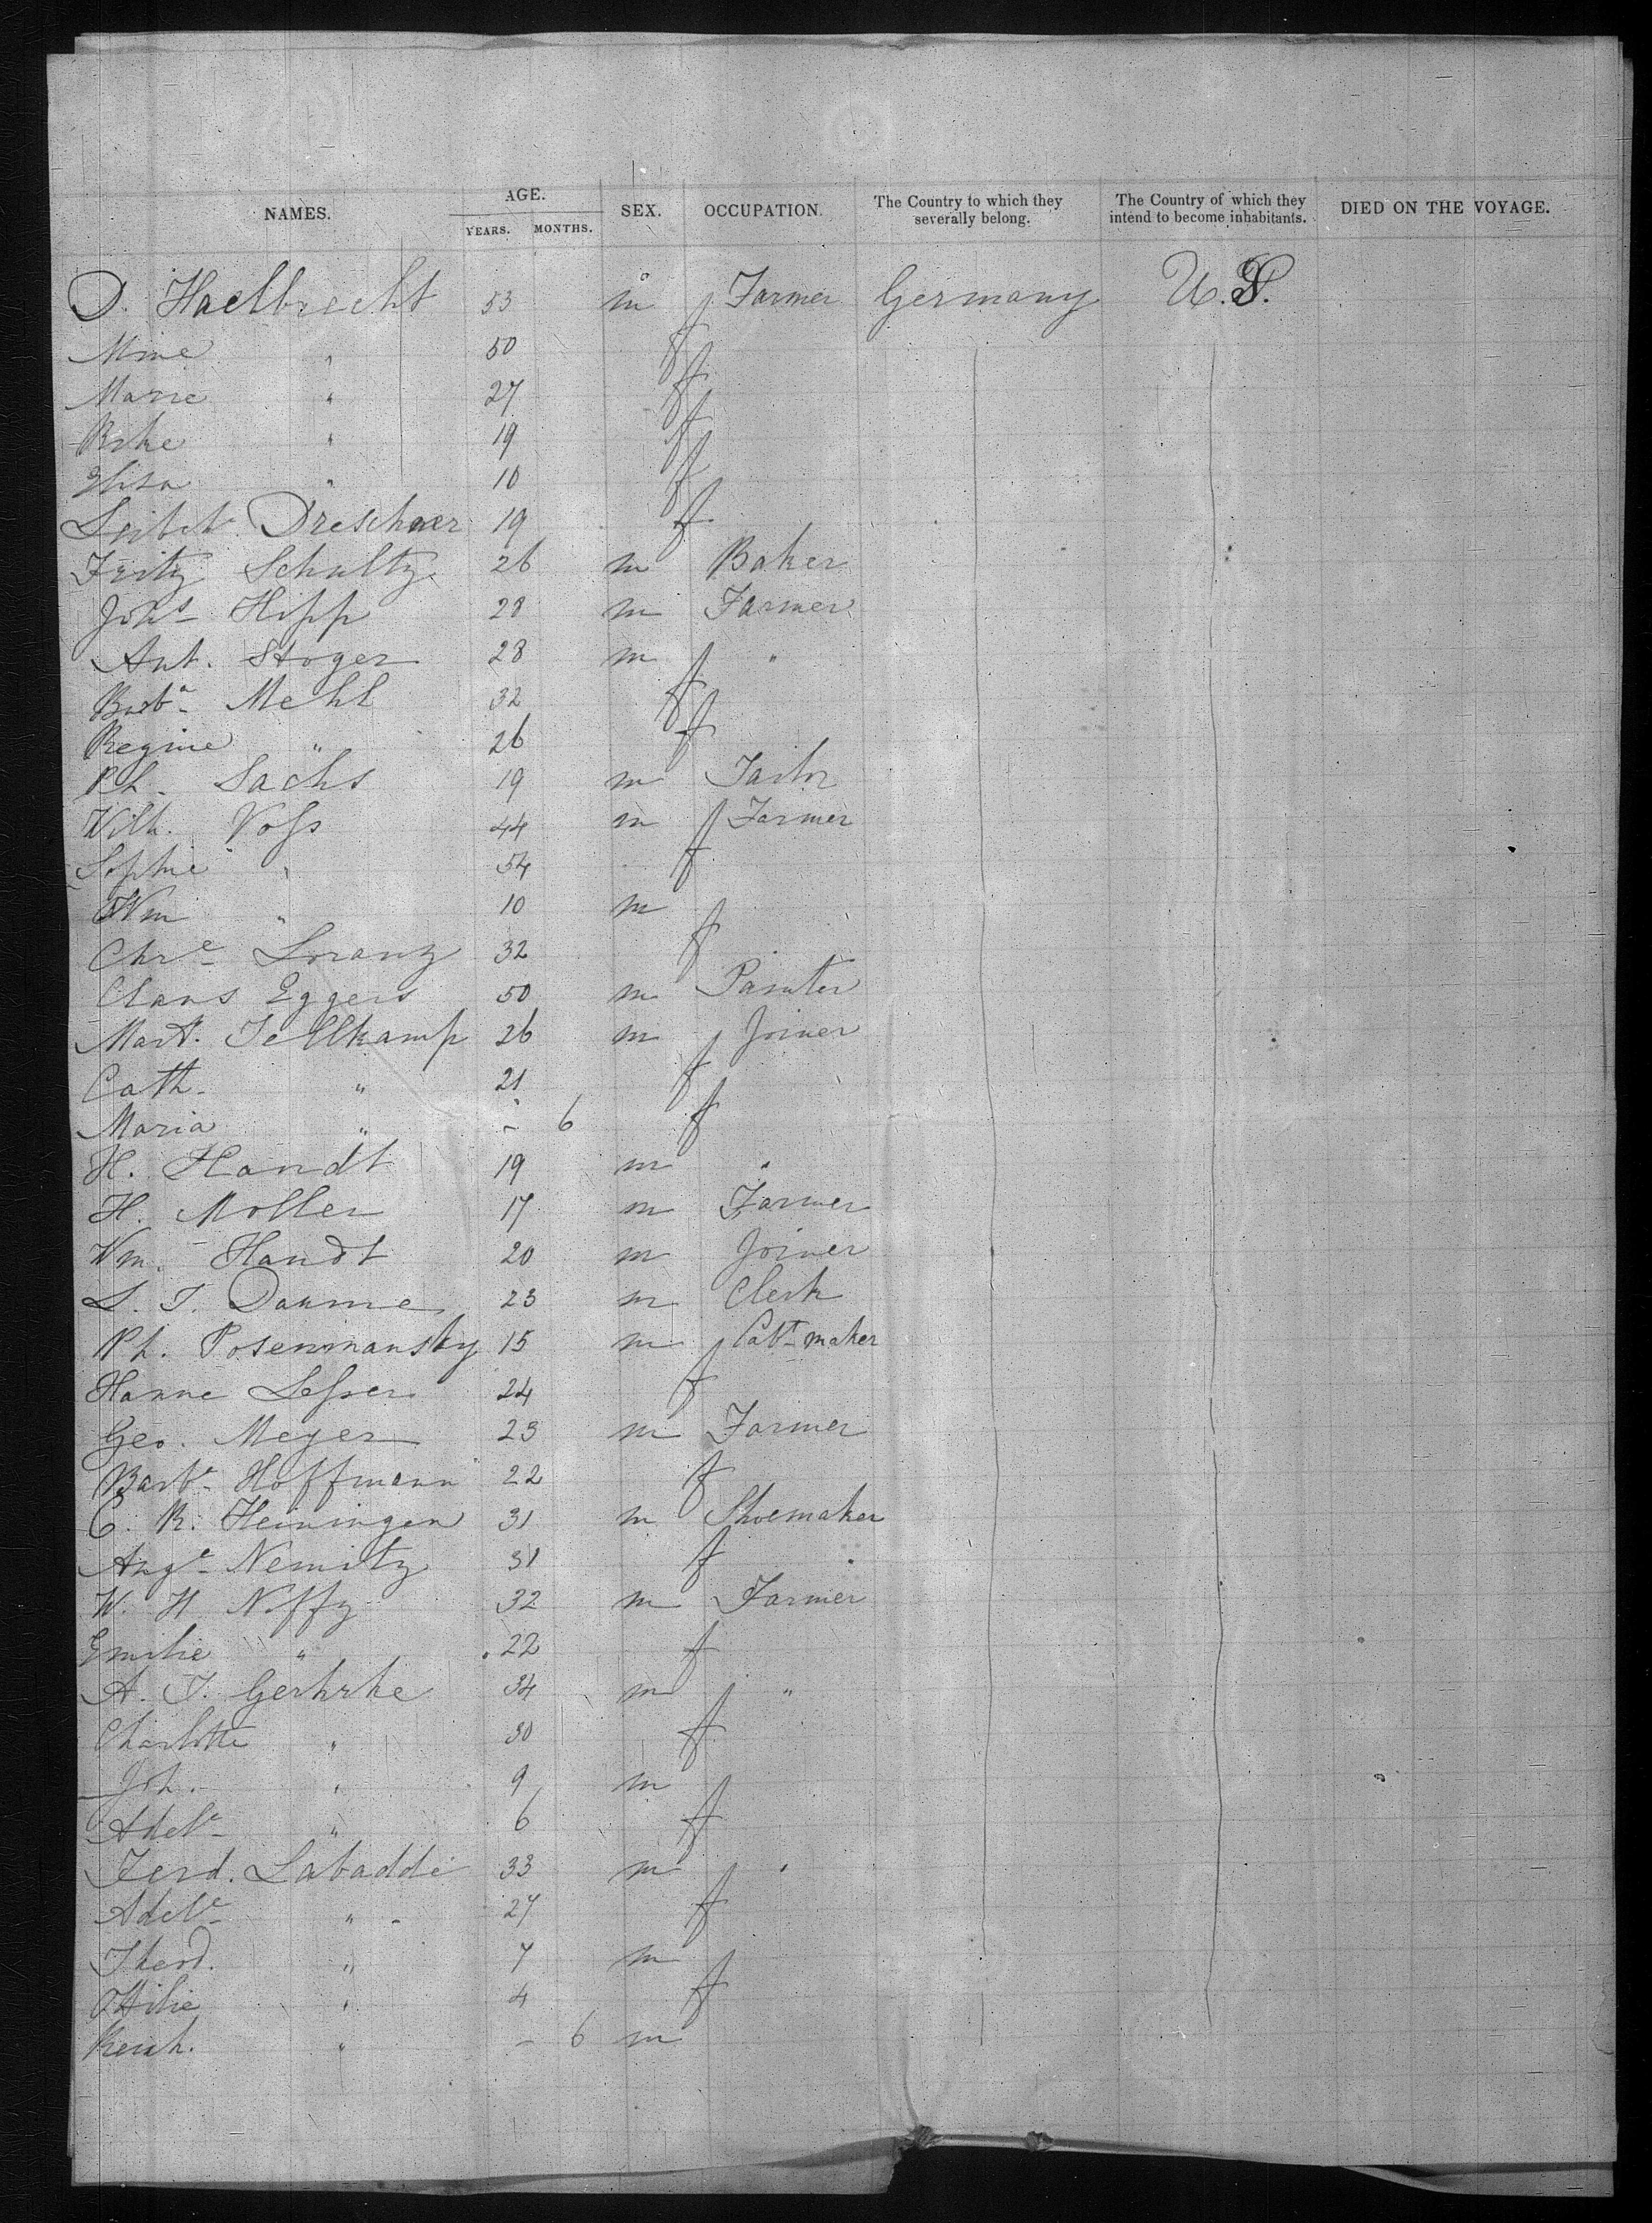 NAMES. AGE. YEARS. MONTHS. SEX. OCCUPATION. The Country to which they severally belong. The Country of which they intend to become inhabitants. DIED ON THE VOYAGE.
D. Haelbrecht 53 m Farmer Germany U.S.
Mine " 50 f
Marie " 27 f
Rike " 19 f
Elisa " 10 f
Dreschner 19 f
Fritz Schultz 26 m Baker
Johs Hipp 28 m Farmer
Ant. Stoger 28 m "
Barba Mehl 32 f
Regine " 26 f
Ph. Sachs 19 m Tailor
Wilh. Voss 44 m Farmer
Sophie " 54 f
Wm " 10 m
Chre Loranz 32 f
Claus Eggers 50 m Painter
Mart. Tellkamp 26 m Joiner
Cath. " 21 f
Maria " - 6 f
H. Handt 19 m "
H. Moller 17 m Farmer
Wm. Handt 20 m Joiner
L. T. Daume 23 m Clerk
Ph. Posenmansky 15 m Cabt maker
Hanne Lesser 24 f
Geo. Meyer 23 m Farmer
Barba Hoffmann 22 f
C. R. Heiningen 31 m Shoemaker
Auge Nemitz 31 f
W. H. Niffy 32 m Farmer
Emilie " 22 f
A. T. Gerhrke 34 m "
Charlotte " 30 f
Joh. " 9 m
Adele " 6 f
Ferd. Labaddi 33 m "
Adele " 27 f
Theod. " 7 m
Ottilie " 4 f
" - 6 m